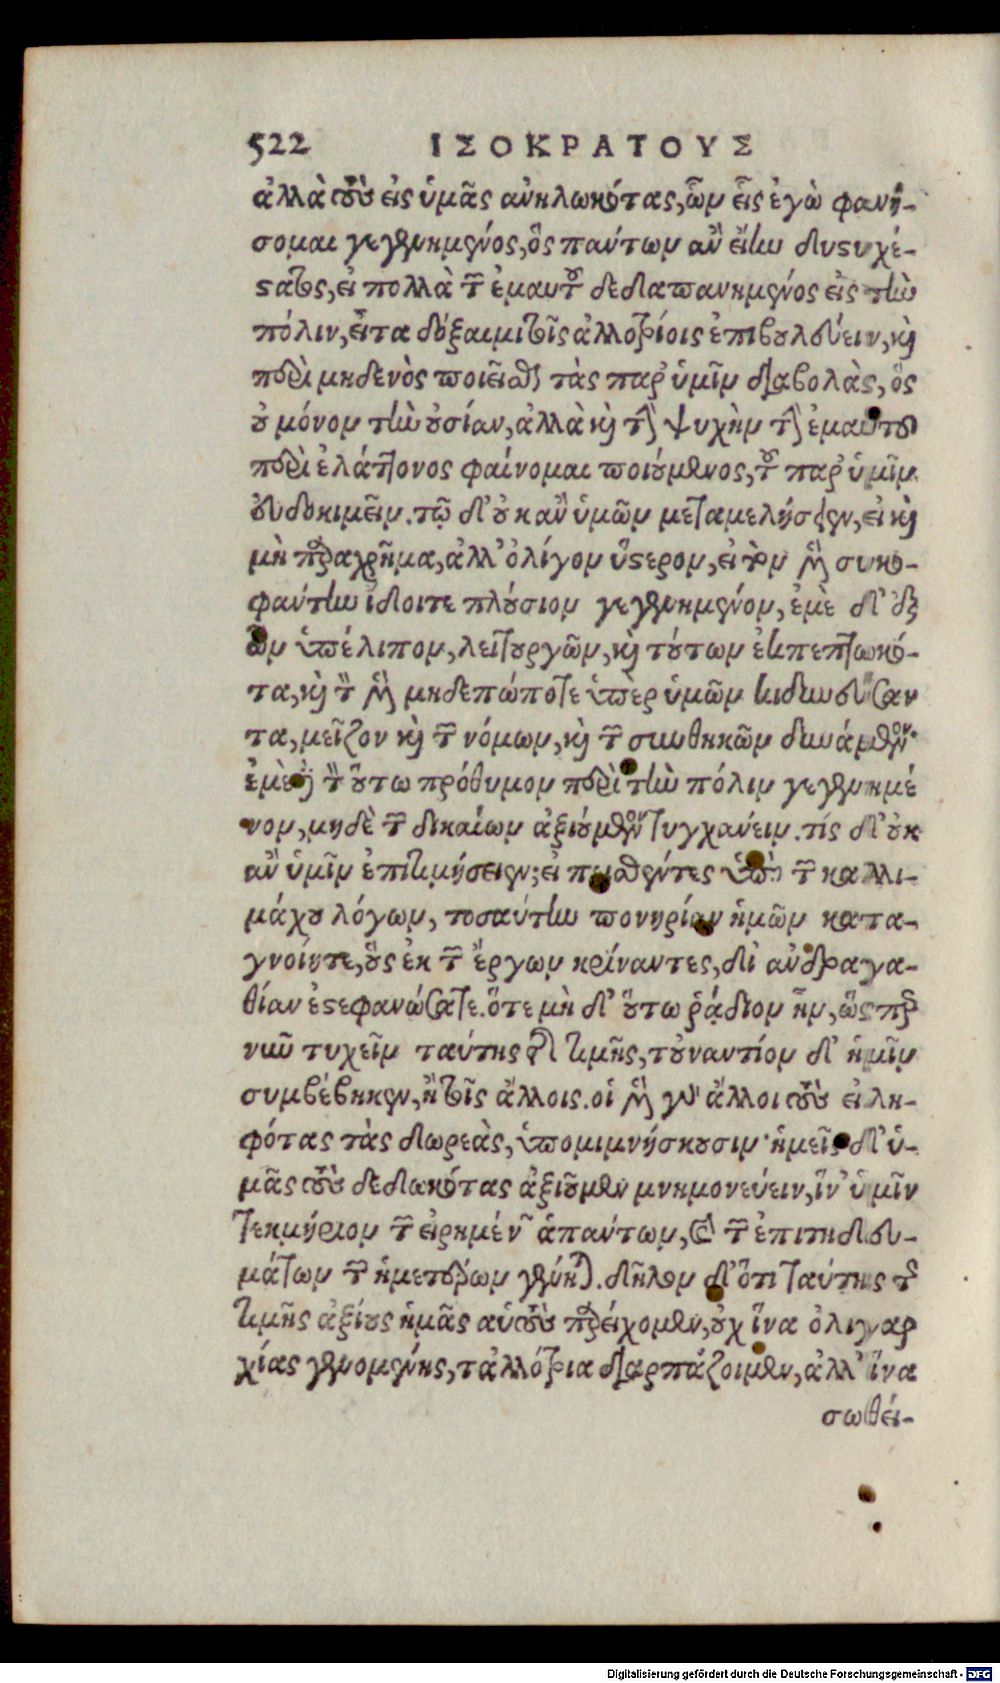 522 ΙΣΟΚΡΑΤΟΥΣ
ἀλλὰ τοὺς εἰς ὑμᾶς ἀνηλωκότας, ὧν εἷς ἐγὼ φανή-
σομαι γεγενημένος, ὃς πάντων ἂν εἴην δυστυχέ-
στατος, εἰ πολλὰ τῶν ἐμαυτοῦ δεδαπανημένος εἰς τὴν
πόλιν, εἶτα δόξαιμι τοῖς ἀλλοτρίοις ἐπιβουλεύειν, καὶ
περὶ μηδενὸς ποιεῖσθαι τὰς παρ' ὑμῖν διαβολὰς, ὃς
οὐ μόνον τὴν οὐσίαν, ἀλλὰ καὶ τὴν ψυχὴν τὴν ἐμαυτοῦ
περὶ ἐλάττονος φαίνομαι ποιούμενος, τοῦ παρ' ὑμῖν
εὐδοκιμεῖν. τῷ δ' οὐκ ἂν ὑμῶν μεταμελήσειεν, εἰ καὶ
μὴ παραχρῆμα, ἀλλ' ὀλίγον ὕστερον, εἰ τὸν μὲν συκο-
φάντην ἴδοιτε πλούσιον γεγενημένον, ἐμὲ δ' ἐξ
ὧν ὑπέλιπον, λειτουργῶν, καὶ τούτων ἐκπεπτωκό-
τα, καὶ τὸν μὲν μηδεπώποτε ὑπὲρ ὑμῶν κινδυνεύσαν
τα, μεῖζον καὶ τῶν νόμων, καὶ τῶν συνθηκῶν δυνάμενον·
ἐμὲ δὲ τὸν οὕτω πρόθυμον περὶ τὴν πόλιν γεγενημέ
νον, μηδὲ τῶν δικαίων ἀξιούμενον τυγχάνειν. τίς δ' οὐκ
ἂν ὑμῖν ἐπιτιμήσειεν; εἰ πεισθέντες ὑπὸ τῶν καλλι-
μάχου λόγων, τοσαύτην πονηρίαν ἡμῶν κατα-
γνοίητε, οὓς ἐκ τῶν ἔργων κρίναντες, δι' ἀνδραγα-
θίαν ἐστεφανώσατε. ὅτε μὴ δ' οὕτω ῥᾴδιον ἦν, ὥσπερ
νῦν τυχεῖν ταύτης τῆς τιμῆς, τοὐναντίον δ' ἡμῖν
συμβέβηκεν, ἢ τοῖς ἄλλοις. οἱ μὲν γὰρ ἄλλοι τοὺς εἰλη-
φότας τὰς δωρεὰς, ὑπομιμνήσκουσιν· ἡμεῖς δ' ὑ-
μᾶς τοὺς δεδωκότας ἀξιοῦμεν μνημονεύειν, ἵν' ὑμῖν
τεκμήριον τῶν εἰρημένων ἁπάντων, καὶ τῶν ἐπιτηδευ-
μάτων τῶν ἡμετέρων γένηται. δῆλον δ' ὅτι ταύτης τῆς
τιμῆς ἀξίους ἡμᾶς αὐτοὺς παρείχομεν, οὐχ ἵνα ὀλιγαρ
χίας γενομένης, τἀλλότρια διαρπάζοιμεν, ἀλλ' ἵνα
σωθεί-
Digitalisierung gefördert durch die Deutsche Forschungsgemeinschaft - DFG